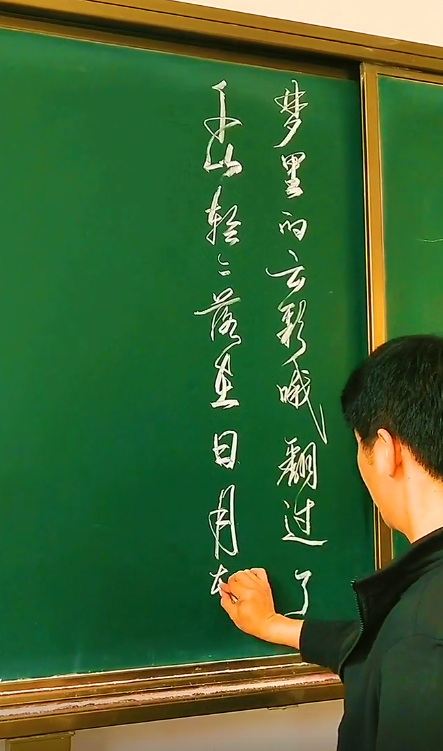 梦里的云彩哦翻过了
千山轻轻落在日月